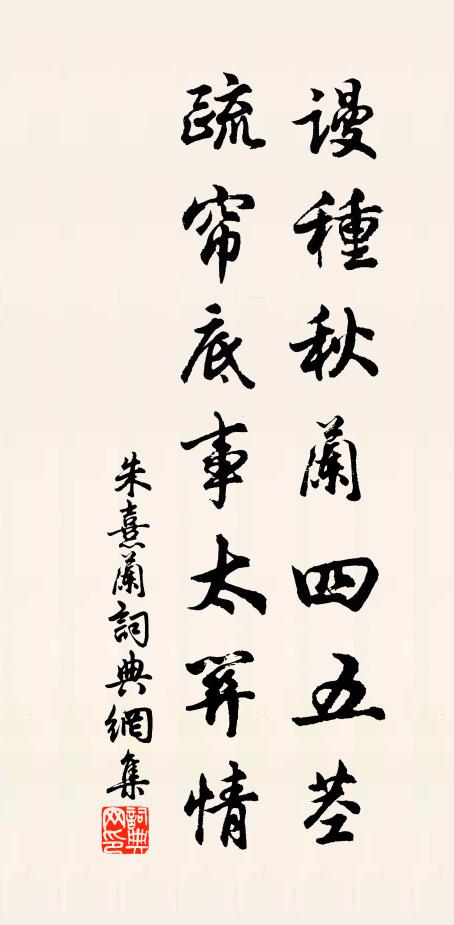 謾種秋蘭四五莖
疏帘底事太關情
朱熹蘭詞典網集
詞典网印